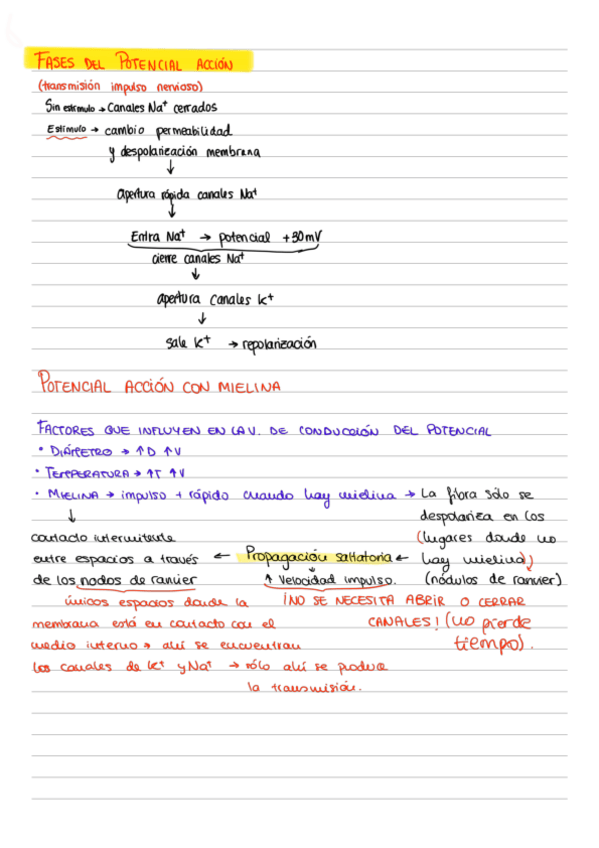 FASES DEL POTENCIAL ACCIÓN
(transmisión impulso nervioso)
Sin estímulo → Canales Na⁺ cerrados
Estímulo → cambio permeabilidad
y despolarización membrana
↓
apertura rápida canales Na⁺
↓
Entra Na⁺ → potencial +30mV
cierre canales Na⁺
↓
apertura canales K⁺
↓
sale K⁺ → repolarización
POTENCIAL ACCIÓN CON MIELINA
FACTORES QUE INFLUYEN EN LA V. DE CONDUCCIÓN DEL POTENCIAL
• DIÁMETRO → ↑D ↑V
• TEMPERATURA → ↑T ↑V
• MIELINA → impulso + rápido cuando hay mielina → La fibra sólo se
↓ despolariza en los
contacto intermitente (lugares donde no
entre espacios a través ← Propagación saltatoria ← hay mielina)
de los nodos de ranvier ↑ velocidad impulso. (nódulos de ranvier)
únicos espacios donde la ¡NO SE NECESITA ABRIR O CERRAR
membrana está en contacto con el CANALES! (no pierde
medio interno → ahí se encuentran tiempo).
los canales de K⁺ y Na⁺ → sólo ahí se produce
la transmisión.